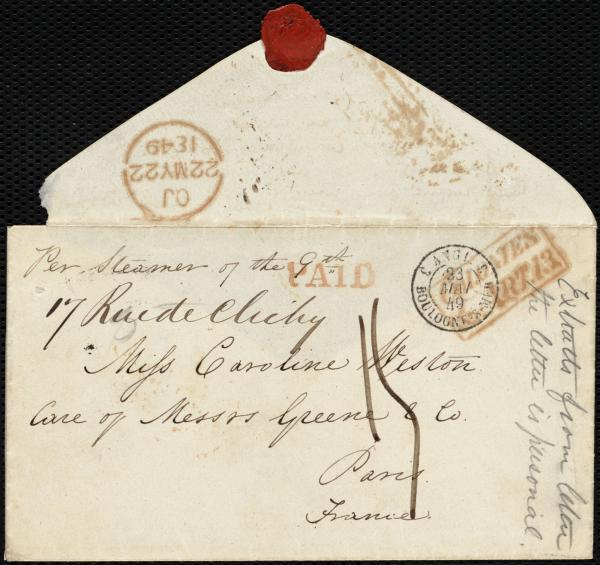 OJ
22MY22
1849
Per Steamer of the 9th
PAID
17 Rue de Clichy
Miss Caroline Weston
Care of Messrs Greene & Co.
Paris
France
15
C. ANGL.
23
MAI
49
BOULOGNE-S-MER
ART.13.
Extracts from letter
the letter is personal.